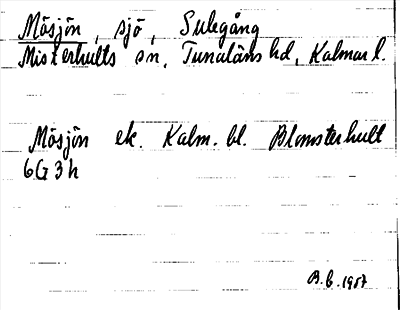 Mösjön, sjö, Sulegång
Misterhults sn, Tunaläns hd, Kalmar l.
Mösjön ek. Kalm. bl. Blomsterhult
6G3h
B.b. 1957